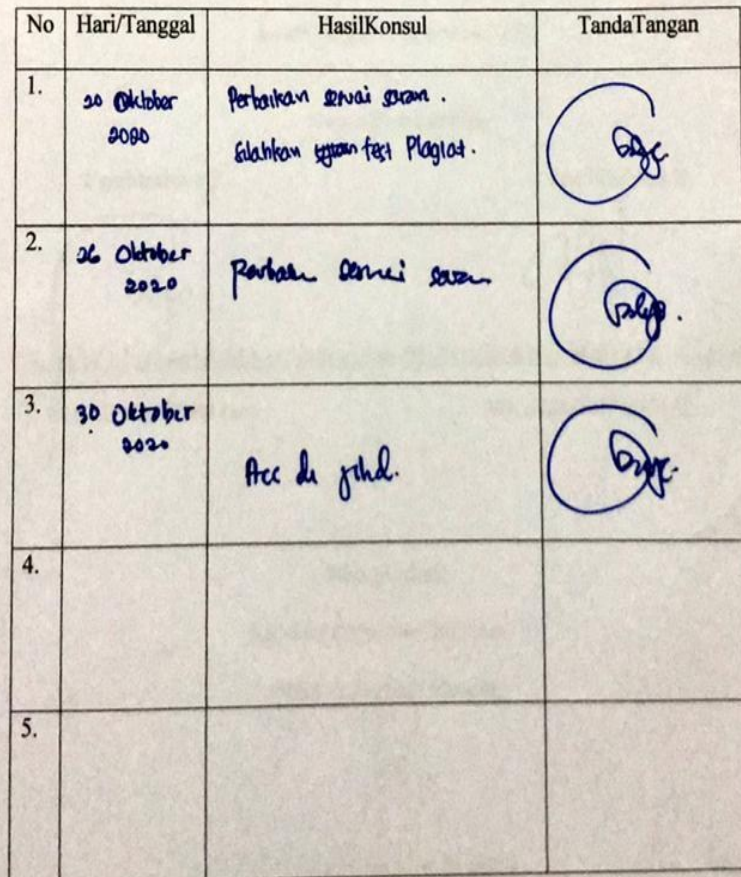 No Hari/Tanggal HasilKonsul TandaTangan
1.
20 Oktober
2020
Perbaikan sesuai saran.
Silahkan test Plagiat.
2.
26 Oktober
2020
Perbaikan sesuai saran
3.
30 Oktober
2020
Acc di jilid.
4.
5.